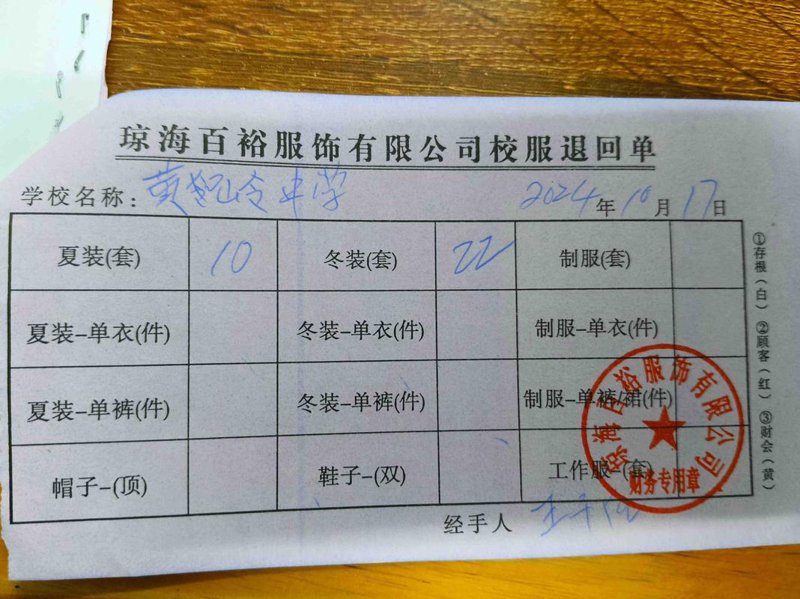 琼海百裕服饰有限公司校服退回单
学校名称: 中学 2024年10月17日
夏装(套) 10 冬装(套) 22 制服(套)
夏装-单衣(件) 冬装-单衣(件) 制服-单衣(件)
夏装-单裤(件) 冬装-单裤(件) 制服-单裤/裙(件)
帽子-(顶) 鞋子-(双) 工作服-(套)
经手人
①存根(白) ②顾客(红) ③财会(黄)
琼海百裕服饰有限公司
财务专用章